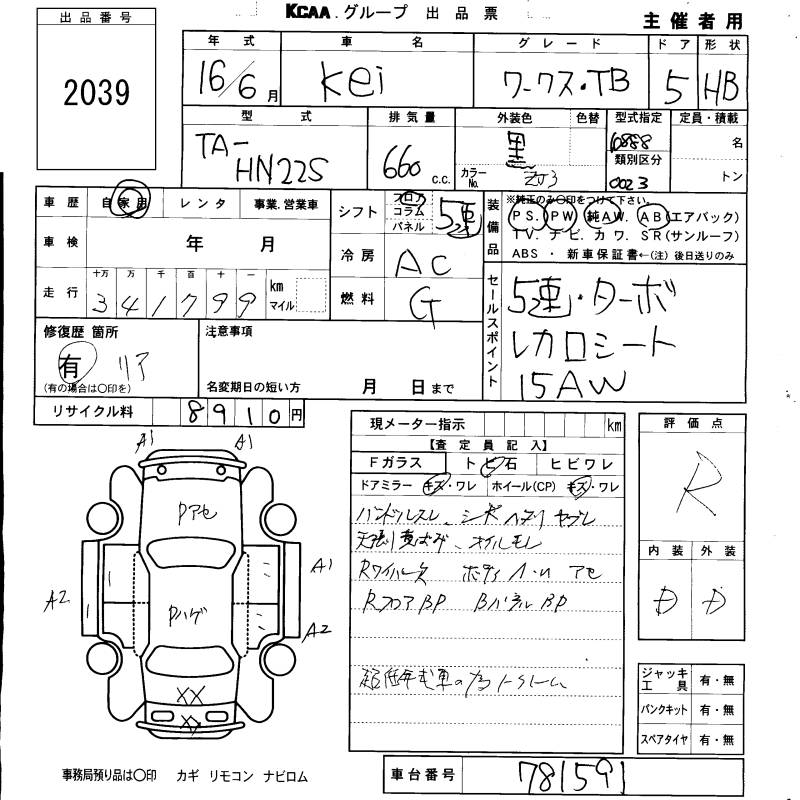 KCAA.グループ 出品票
主催者用
出品番号
2039
年式 車名 グレード ドア 形状
16/6月 Kei ワークス・TB 5 HB
型式 排気量 外装色 色替 型式指定 定員・積載
TA-HN22S 660 c.c. 黒 カラーNo. ZJ3 類別区分 0023 名 トン
車歴 自家用 レンタ 事業.営業車
車検 年 月
走行 十万 万 千 百 十 一 km マイル
341799
シフト フロア コラム パネル 5速
冷房 AC
燃料 G
装備品 ※純正のみ○印をつけて下さい。
PS. PW 純AW. AB(エアバック)
TV. ナビ. カワ. SR(サンルーフ)
ABS ・ 新車保証書←(注) 後日送りのみ
セールスポイント
5速・ターボ
レカロシート
15AW
修復歴 箇所
有 リア
(有の場合は○印を)
注意事項
名変期日の短い方 月 日まで
リサイクル料 8910円
現メーター指示 km
【査定員記入】
Fガラス ト ビ石 ヒビワレ
ドアミラー キズ・ワレ ホイール(CP) キズ・ワレ
ハンドルスレ、シート ヤブレ
オイルモレ
ボディ アセ
RフロアBP BパネルBP
評価点
R
内装 外装
D D
A1 A1
Pアセ
A1
A2
Pハゲ
A2
XX
XX
ジャッキ工具 有・無
パンクキット 有・無
スペアタイヤ 有・無
事務局預り品は○印 カギ リモコン ナビロム
車台番号 781591